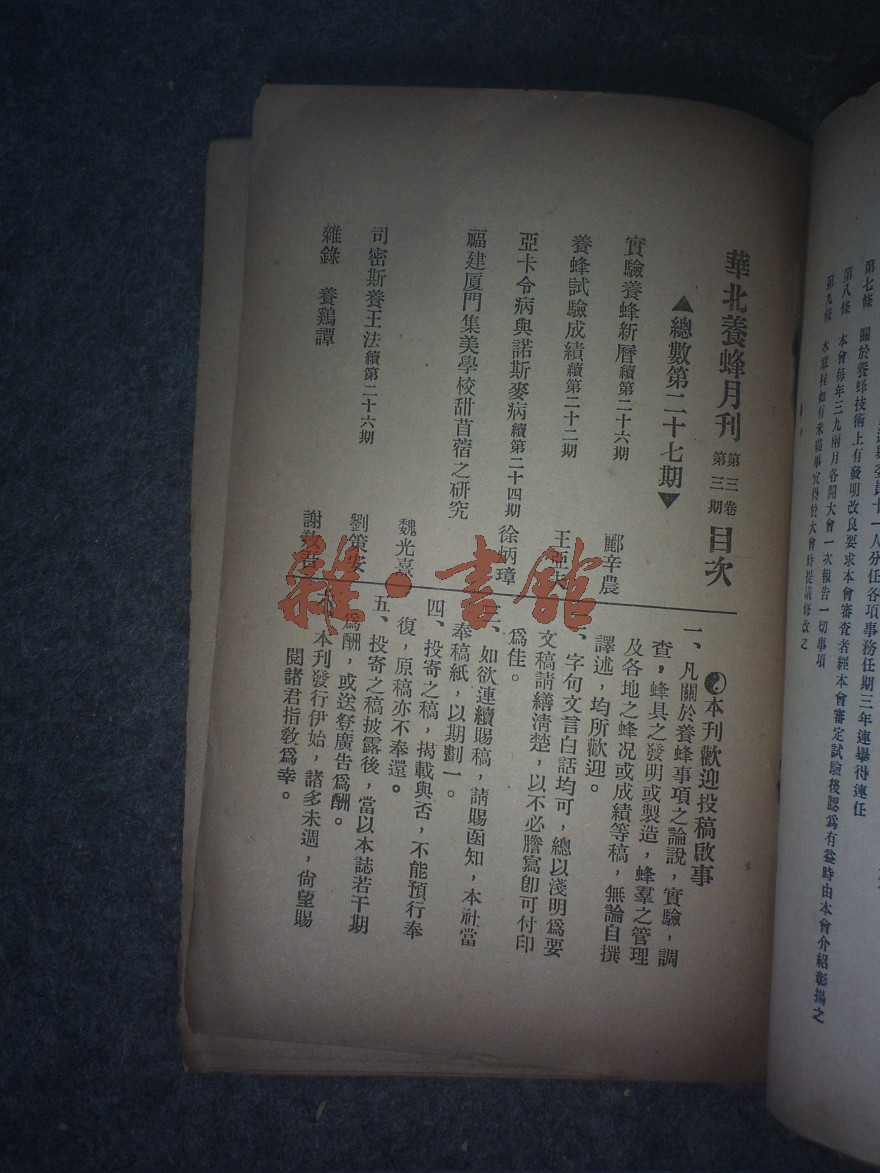 第七條　關於養蜂技術上有發明改良要求本會審查者經本會審定試驗後認爲有益時由本會介紹彰揚之
第八條　本會每年三九兩月各開大會一次報告一切事項
第九條　本章程如有未盡事宜得於大會時提議修改之
華北養蜂月刊 第三卷第三期 目次
▲總數第二十七期▼
實驗養蜂新曆續第二十六期 酈辛農
養蜂試驗成績續第二十二期
亞卡令病與諾斯麥病續第二十四期 徐炳璋
福建厦門集美學校甜苜蓿之研究 魏光熹
司密斯養王法續第二十六期 劉策安
雜錄　養鷄譚
本刊歡迎投稿啟事
一、凡關於養蜂事項之論說，實驗，調
查，蜂具之發明或製造，蜂羣之管理
及各地之蜂况或成績等稿，無論自撰
譯述，均所歡迎。
二、字句文言白話均可，總以淺明爲要
文稿請繕清楚，以不必謄寫卽可付印
爲佳。
三、如欲連續賜稿，請賜函知，本社當
奉稿紙，以期劃一。
四、投寄之稿，揭載與否，不能預行奉
復，原稿亦不奉還。
五、投寄之稿披露後，當以本誌若干期
爲酬，或送登廣告爲酬。
本刊發行伊始，諸多未週，尙望賜
閱諸君指敎爲幸。
雜·書館